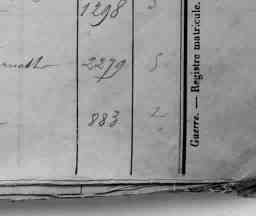 1298 5
2279 5
883 2
Guerre. — Registre matricule.